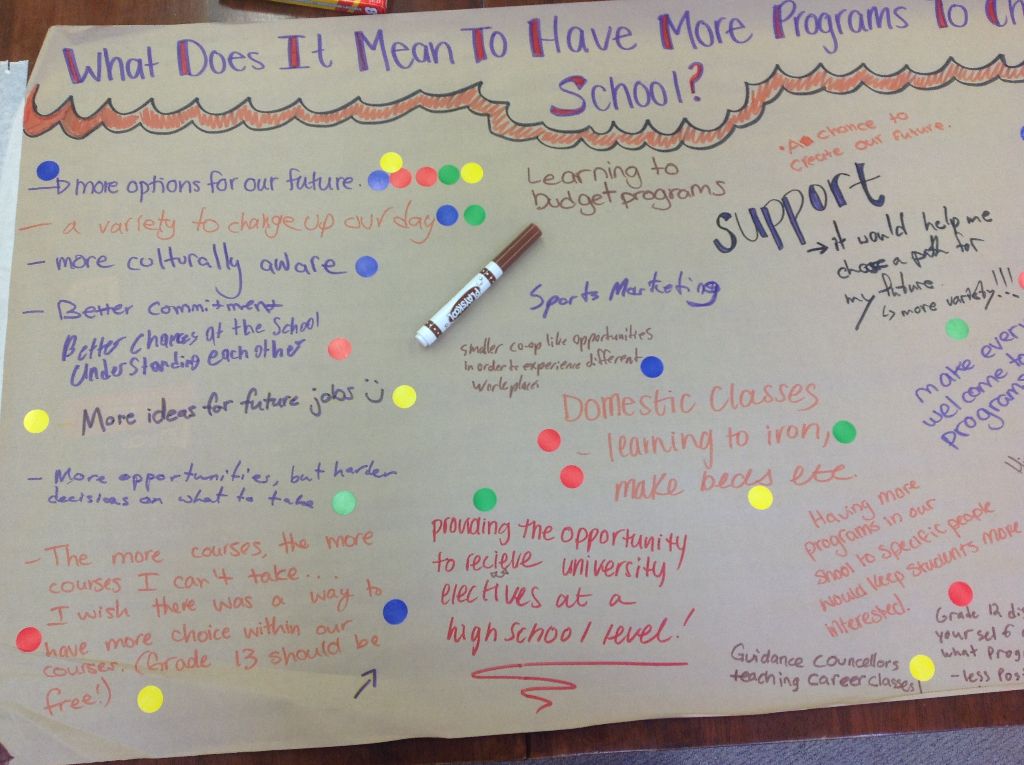 What Does It Mean To Have More Programs To Ch
School?
→ more options for our future.
– a variety to change up our day
– more culturally aware
– Better commitment
Better Chances at the School
Understanding each other
More ideas for future jobs :)
– More opportunities, but harder
decisions on what to take
– The more courses, the more
courses I can't take...
I wish there was a way to
have more choice within our
courses. (Grade 13 should be
free!)
Learning to
budget programs
PLAYSKOOL
Sports Marketing
Smaller co-op like opportunities
in order to experience different
workplaces
Domestic Classes
- learning to iron,
make beds etc.
providing the opportunity
to recieve university
electives at a
high school level!
• A chance to
create our future.
support
→ it would help me
choose a path for
my future
↳ more variety...!!!
make every
welcome to
programs
Having more
programs in our
shool to specific people
would keep students more
interested.
Guidance councellors
teaching career classes
Grade 12 di
your self
what prog
- less Pos